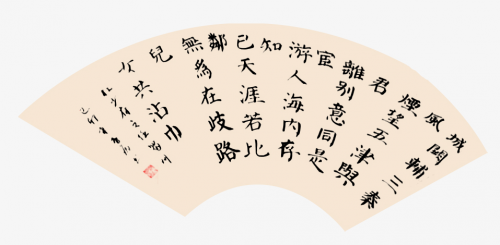 城闕輔三秦
風
煙望五津與
君
離別意同是
宦
游人海內存
知
已天涯若比
鄰
無為在歧路
兒
女共沾巾
杜少府之任蜀州
己卯年